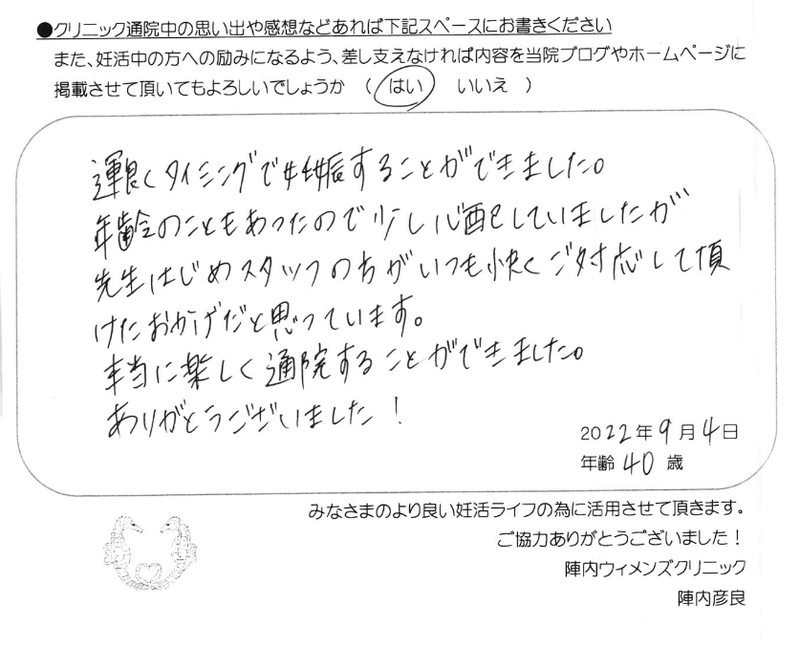 ●クリニック通院中の思い出や感想などあれば下記スペースにお書きください
また、妊活中の方への励みになるよう、差し支えなければ内容を当院ブログやホームページに
掲載させて頂いてもよろしいでしょうか （ はい　いいえ ）
運良くタイミングで妊娠することができました。
年齢のこともあったので少し心配していましたが
先生はじめスタッフの方がいつも快くご対応して頂
けたおかげだと思っています。
本当に楽しく通院することができました。
ありがとうございました！
2022年9月4日
年齢 40 歳
みなさまのより良い妊活ライフの為に活用させて頂きます。
ご協力ありがとうございました！
陣内ウィメンズクリニック
陣内彦良